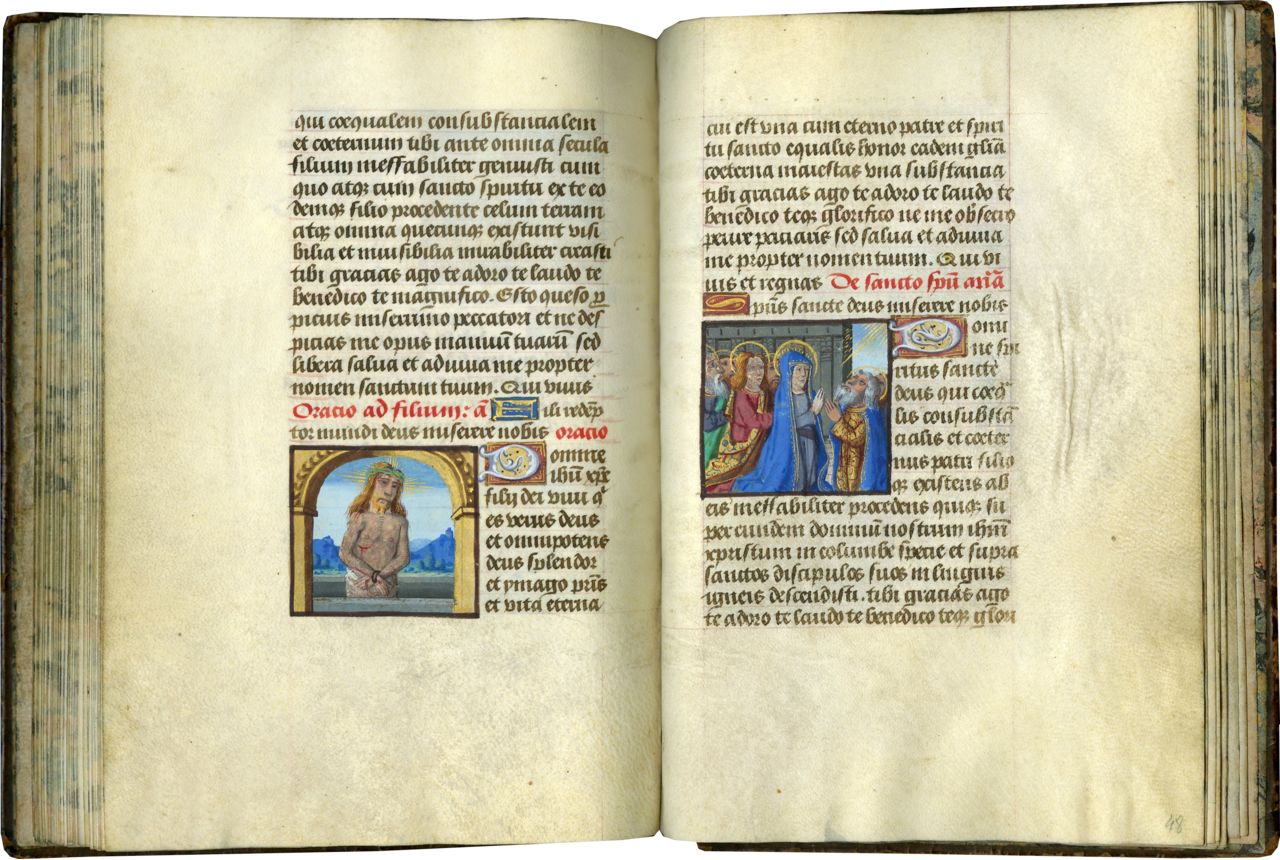 qui coequalem consubstancialem
et coeternum tibi ante omnia secula
filium ineffabiliter genuisti cum
quo atqꝫ cum sancto spiritu ex te eo
demqꝫ filio procedente celum terram
atqꝫ omnia quecunqꝫ existunt visi
bilia et inuisibilia mirabiliter creasti
tibi gracias ago te adoro te laudo te
benedico te magnifico. Esto queso ꝓ
picius miserrimo peccatori et ne des
picias me opus manuū tuarū sed
libera salua et adiuua me propter
nomen sanctum tuum. Qui viuis
Oracio ad filium: ā Fili redēp
tor mundi deus miserere nobis oracio
Domine
ihū xp̄e
filij dei viui q
es verus deus
et omnipotens
deus splendor
et ymago pr̄is
et vita eterna
cui est vna cum eterno patre et spiri
tu sancto equalis honor eadem gl̄ia
coeterna maiestas vna substancia
tibi gracias ago te adoro te laudo te
benedico teqꝫ glorifico ne me obsecro
perire paciaris sed salua et adiuua
me propter nomen tuum. Qui vi
uis et regnas De sancto sp̄ū
Sp̄us sancte deus miserere nobis
Domi
ne spi
ritus sancte
deus qui coeq̄
lis consubstā
cialis et coeter
nus patri filio
qꝫ existens ab
eis ineffabiliter procedens quiqꝫ su
per eundem dominū nostrum ihm̄
xpristum in columbe specie et supra
sanctos discipulos suos in linguis
igneis descendisti. tibi gracias ago
te adoro te laudo te benedico teqꝫ glori
48